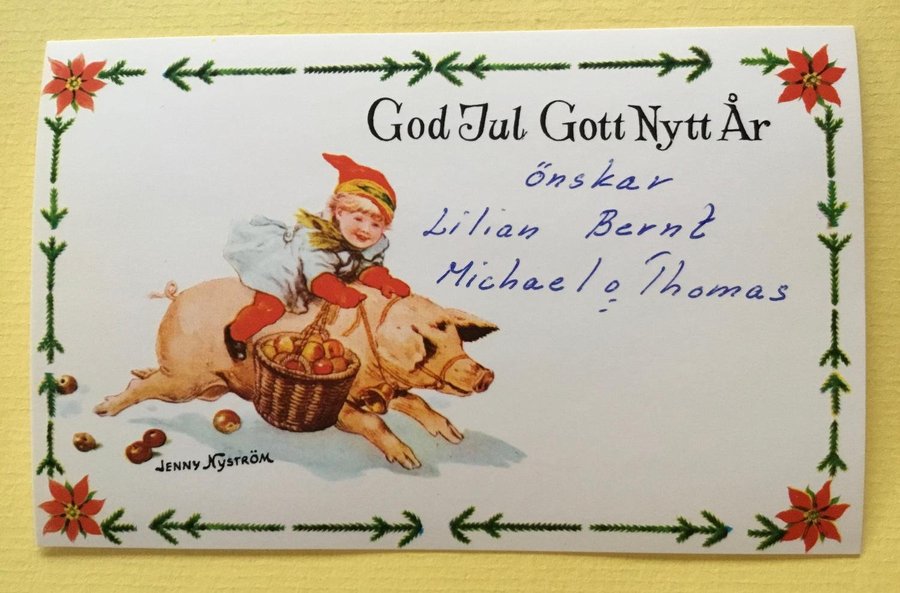 God Jul Gott Nytt År
önskar
Lilian Bernt
Michael o Thomas
JENNY NYSTRÖM